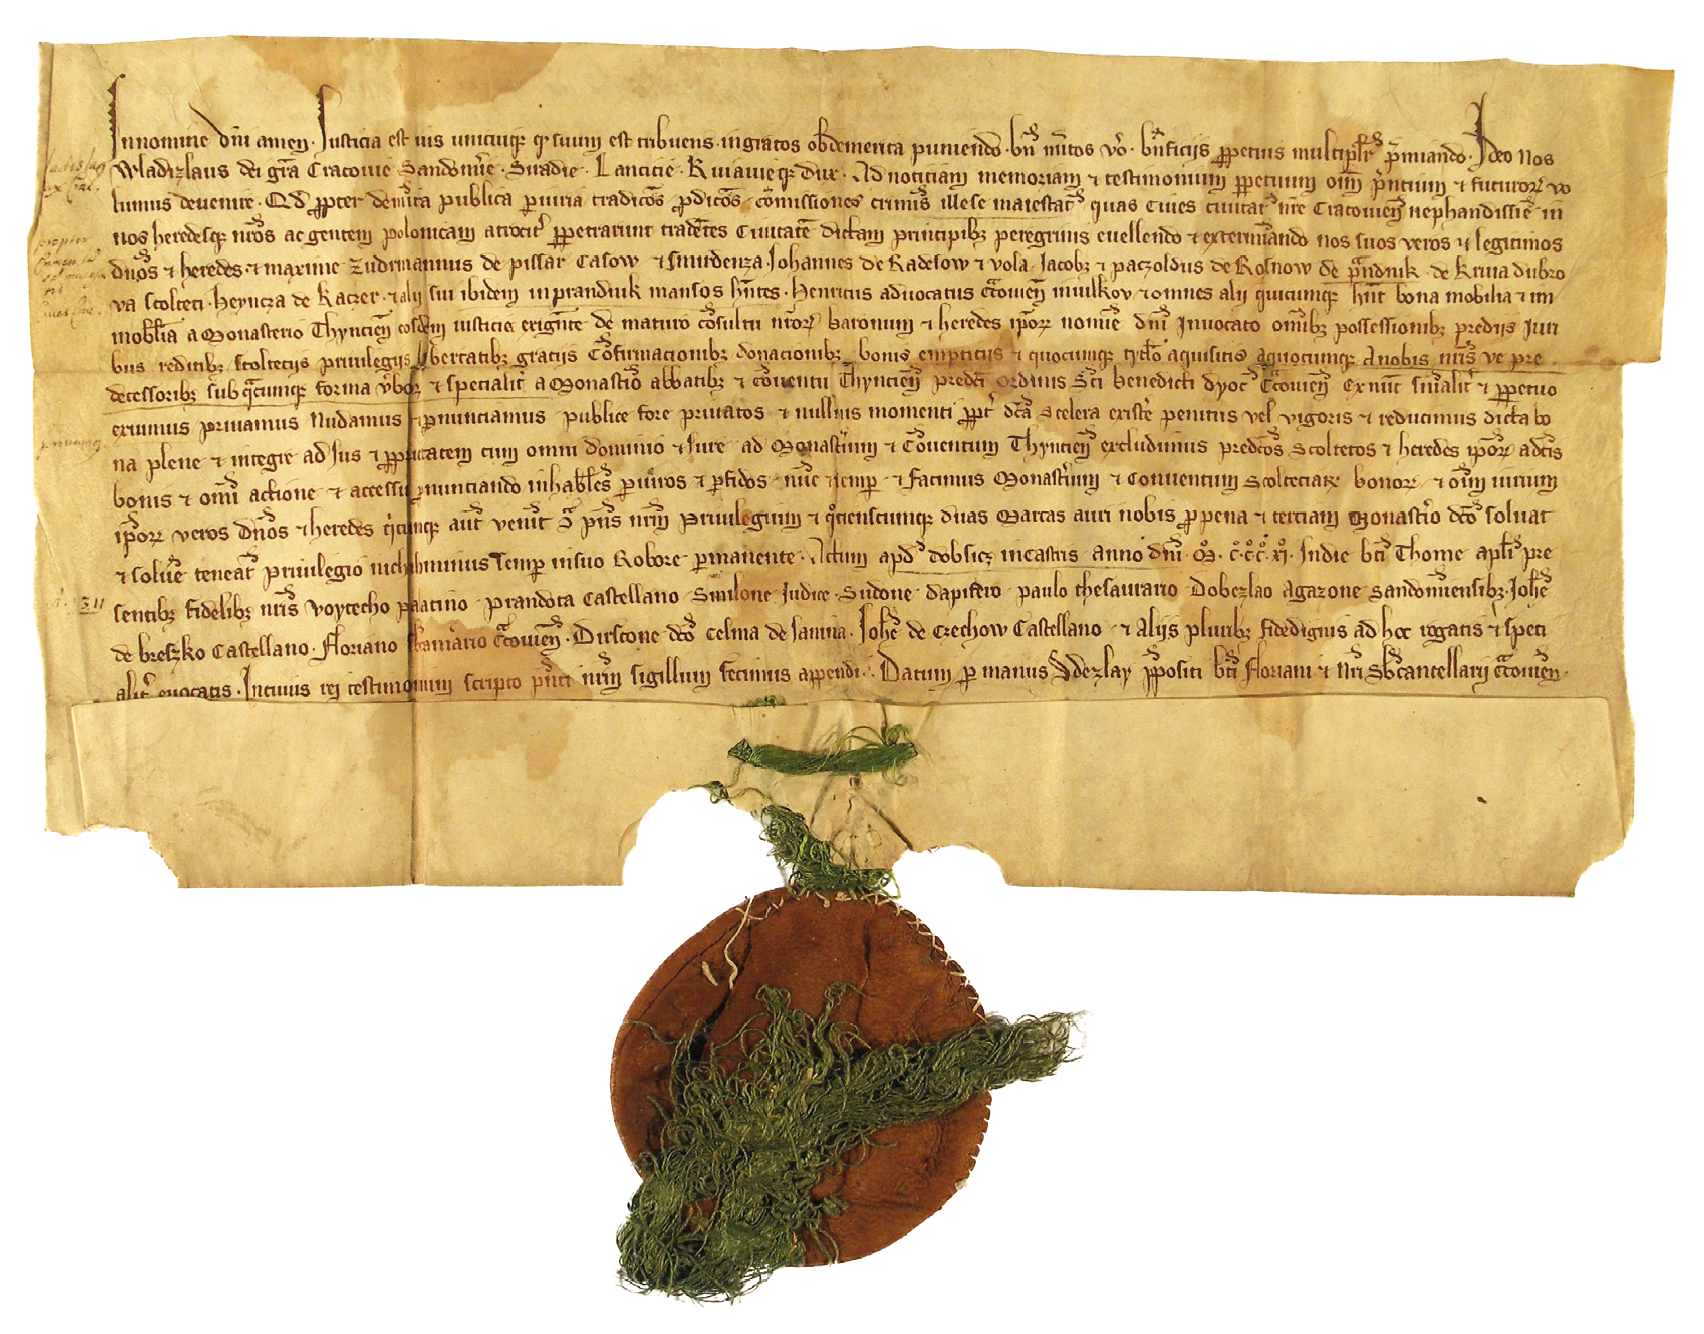 In nomine dñi amen. Justicia est ius unicuiqz qr suum est tribuens. ingratos ob demerita puniendo. bñ mitos vo. bñficijs ppetuis multiplr pmiando. Ideo nos
Wladizlaus dei gra Cracouie Sandomie. Siradie. Lancicie. Kuiauieqz dux. Ad noticiam memoriam & testimonium ppetuum oim pntium & futuroꝝ vo
lumus deuenire. Qd ppter demita publica piuria tradicoes pdicoes comissiones criminis illese maiestatis quas Ciues ciuitatis nre Cracouien nephandissie in
nos heredesqz nros ac gentem polonicam atrocit ppetrarunt tradetes Ciuitate dictam principibz peregrinis euellendo & exterminando nos suos veros & legitimos
dnos & heredes. & maxime Zudrmannus de pissar Casow & smirdenza. Johannes de Radesow & vola. Jacobz & paczoldus de Rosnow de pndnik. de Kriua dubro
va scolteti. heyncza de Kaczer. & alij siu ibidem in prandnik mansos hntes. henricus aduocatus Cracouien miulkov & omnes alij quicunqz hnt bona mobilia & im
mobilia a Monasterio Thyncien eosdem iusticia exigente de maturo consultu nroꝝ baronum & heredes ipoꝝ nomie dni Inuocato omibz possessionibz predijs Iuri
bus redditibz scolteciis priuilegijs libertatibz gratijs Confirmacionibz donacionibz bonis empticijs & quocunqz tytlo aquisitis aquocunqz A nobis nris ve pre
decessoribz sub qcunqz forma vboꝝ & specialit a Monastio abbatibz & Couentu Thyncien predci ordinis Sci benedicti dyoc Cracouien ex nuc simalit & ppetuo
eximimus priuamus Nudamus & pnunciamus publice fore priuatos & nullius momenti ppt dca scelera existe penitus vel vigoris & reducimus dicta bo
na plene & integre ad Jus & pprietatem cum omni dominio & Jure ad Monastium & Couentum Thyncien excludimus predcos Scoltetos & heredes ipoꝝ a dcis
bonis & omi actione & accessu pnunciando inhabiles piuros & pfidos nuc & semp & facimus Monastium & Conuentum Scolteciaꝝ bonoꝝ & oim iurium
ipoꝝ veros dnos & heredes qicunqz aut venit cont pns nrm Priuilegium & qcienscunqz duas Marcas auri nobis p pena & terciam Monastio dco soluat
& soluere teneat priuilegio nichilominus semp in suo Robore pmanente. Actum apd dobsicz in castris anno dni. M. c. c. c. xj. Indie bti Thome apli pre
sentibz fidelibz nris voytecho palatino prandota Castellano Smilone Judice Sudone dapifero paulo thesaurario dobezlao Agazone sandomiensibz. Johe
de breszko Castellano. Floriano camario Cracouien. dirscone dco celma de sanina. Johe de Czechow Castellano & Alijs pluribz fidedignis ad hoc rogatis & speci
alit euocatis. In cuius rei testimonium scripto pnti nrm sigillum fecimus appendi. Datum p manus Sdezlay ppositi bti floriani & nri Sbcancellarij Cracouien.